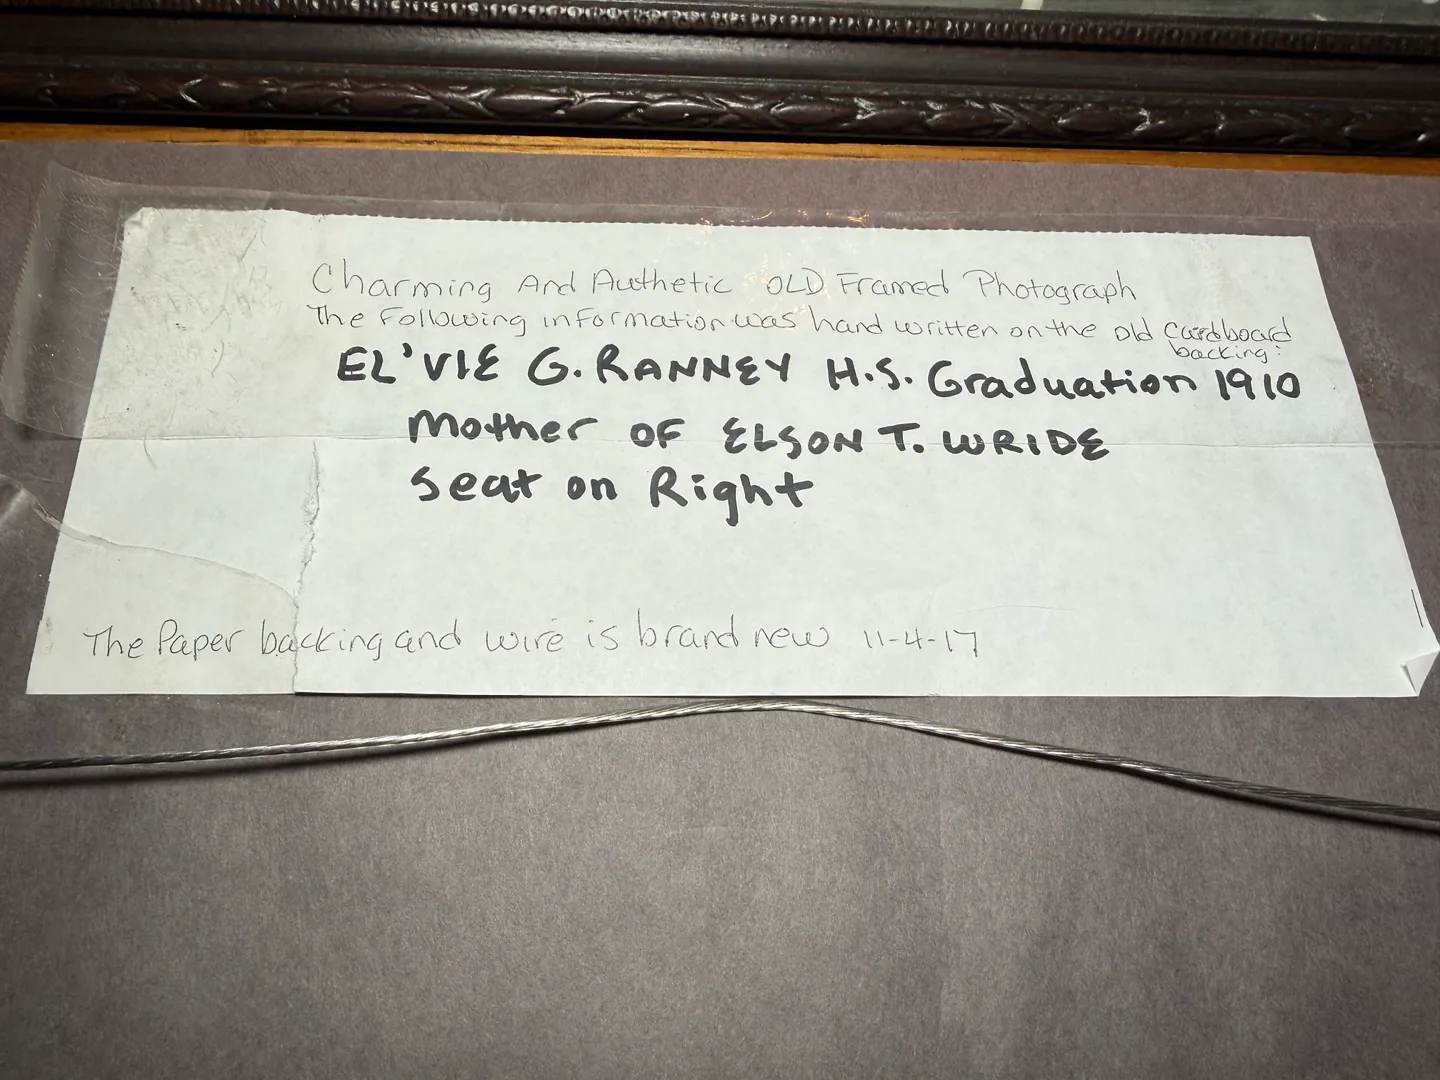 Charming And Authetic OLD Framed Photograph
The Following information was hand written on the old Cardboard
backing:
EL'VIE G. RANNEY H.S. Graduation 1910
Mother OF ELSON T. WRIDE
Seat on Right
The Paper backing and wire is brand new 11-4-17